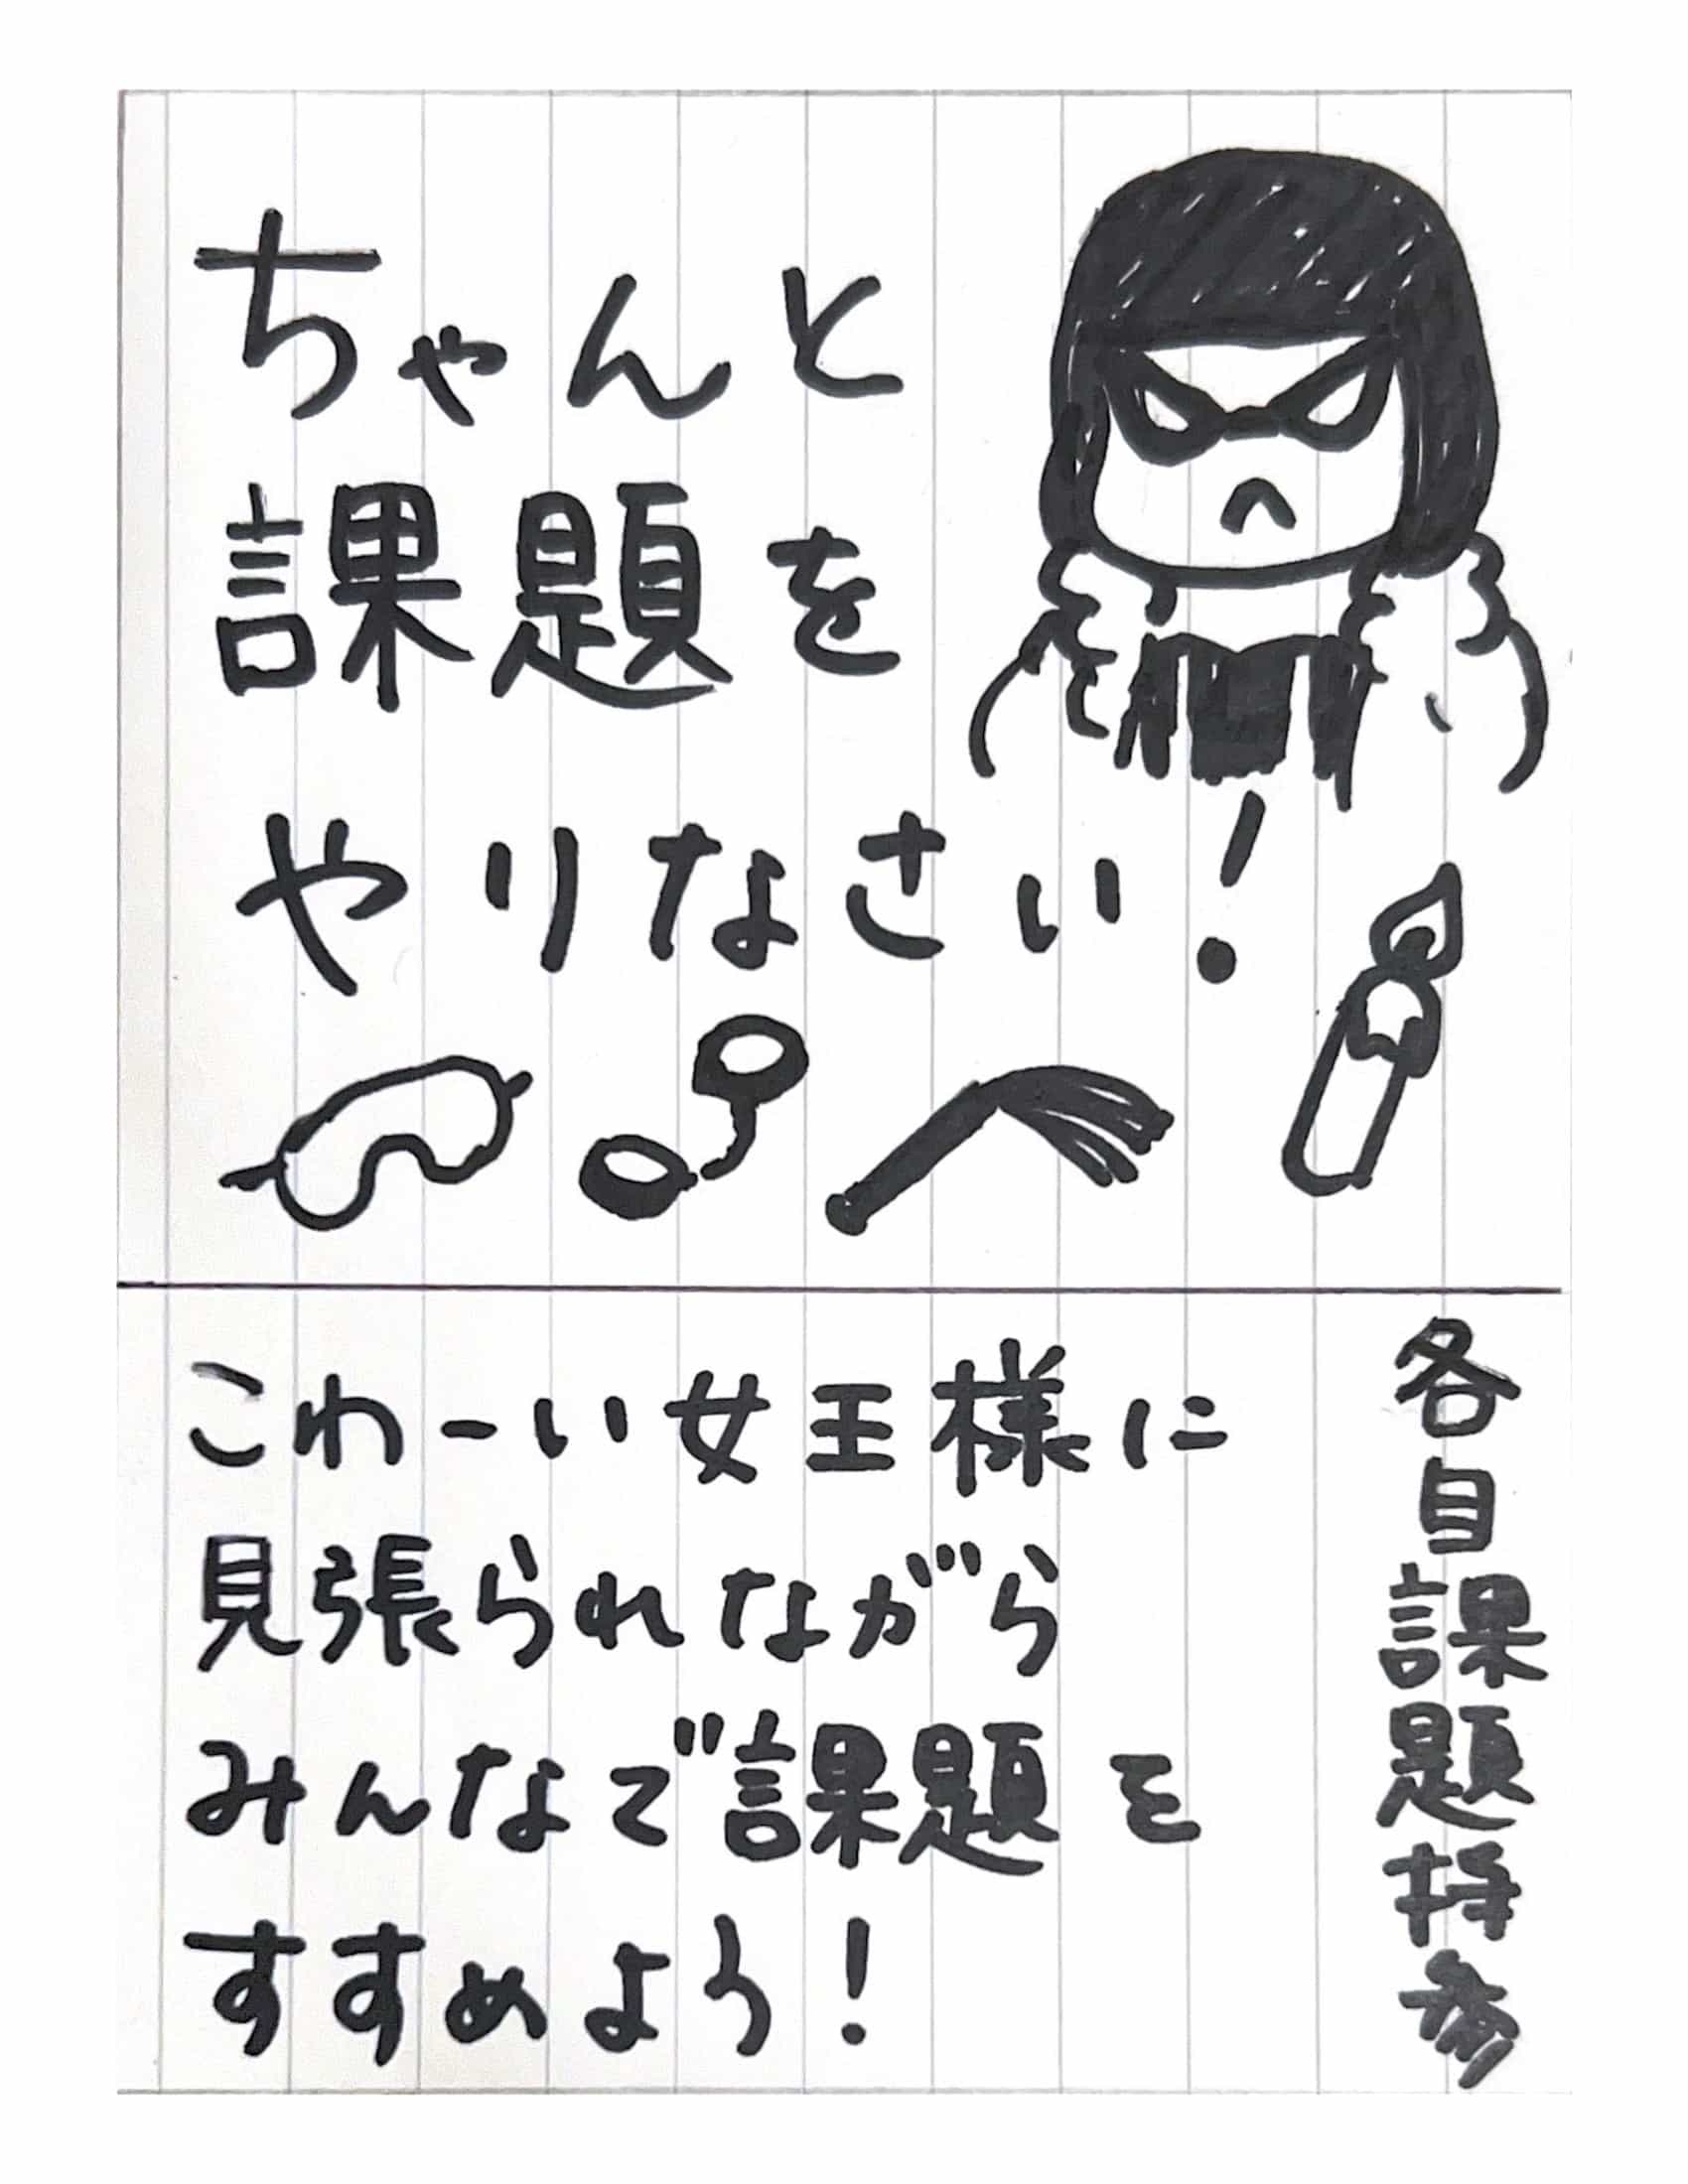 ちゃんと
課題を
やりなさい!
こわーい女王様に
見張られながら
みんなで課題を
すすめよう!
各自課題持参